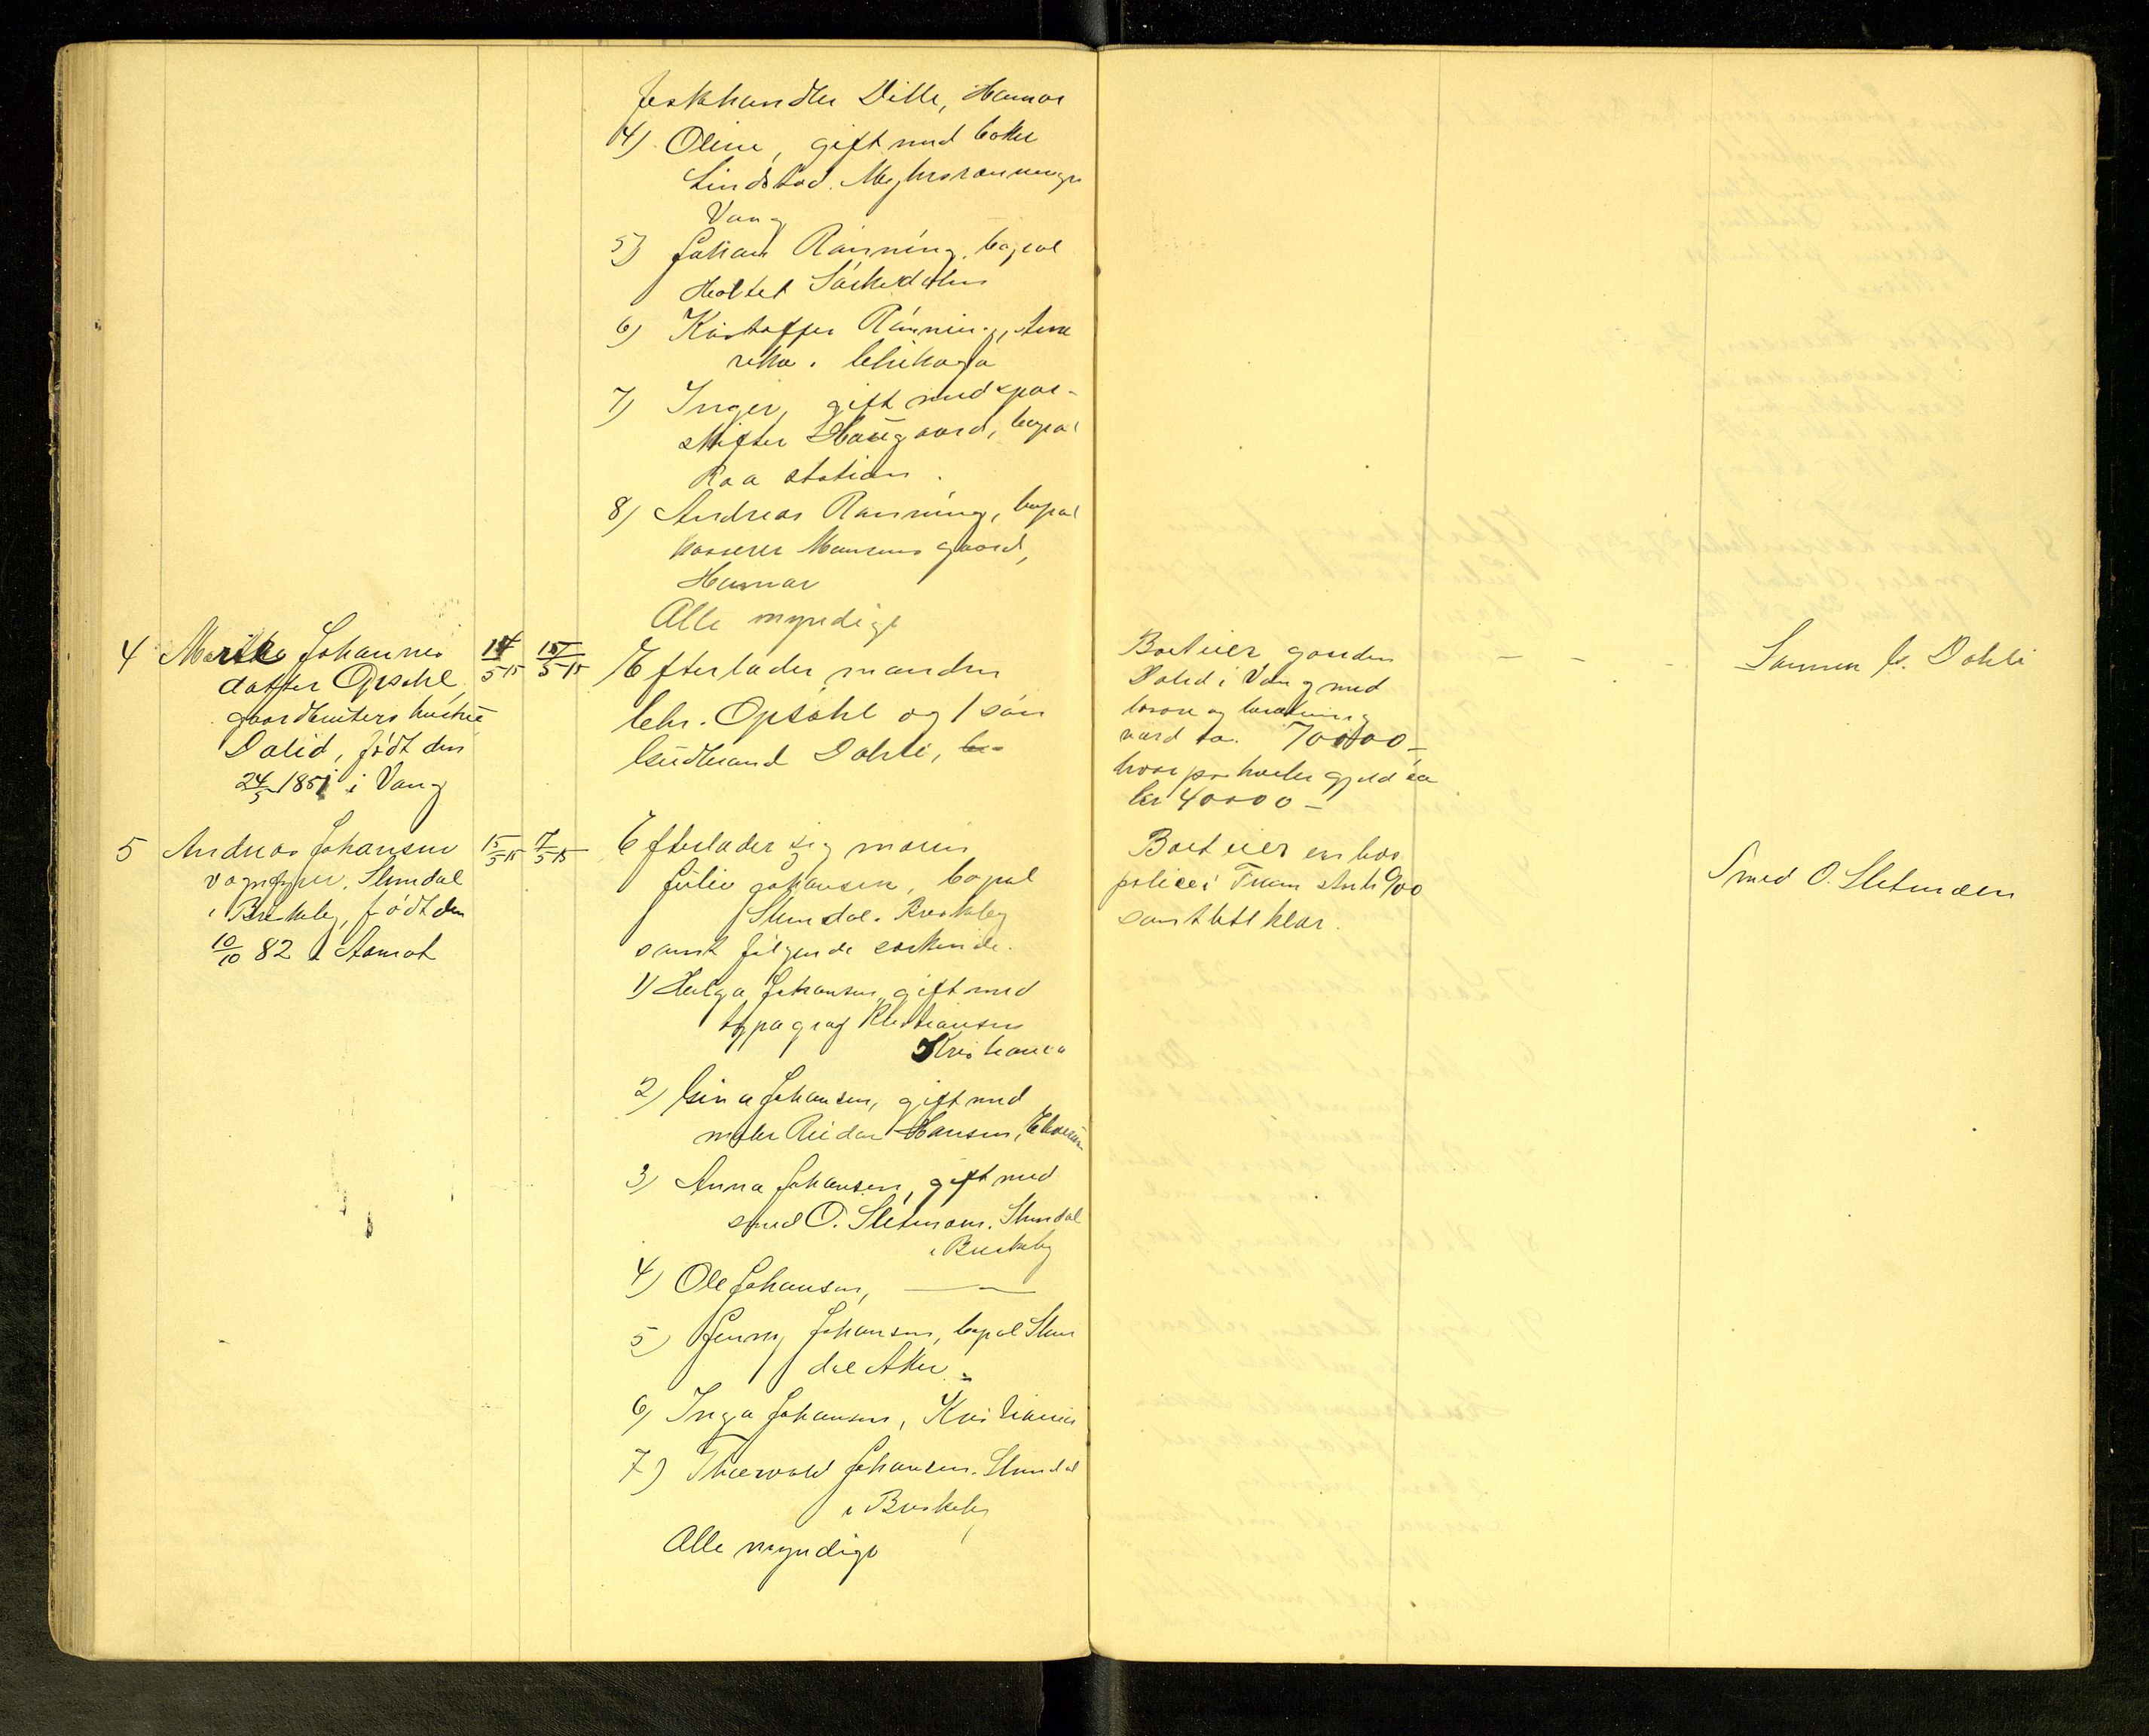 feskhandler Dille, Hamar
4) Oline, gift med baker
Lindstad.
Vang
5) Johan Rønning, bopæl
Holtet Sørkedalen
6) Kristoffer Rønning, Ame
rika. Chikago
7) Inger, gift med spor-
skifter Haugaard, bopæl
Roa station.
8) Andreas Rønning, bopæl
kasserer gaard,
Hamar
Alle myndige
4 Marthe Johannes
datter Opsahl
gaardbruters hustru
Dalid, født den
24/5 1851 i Vang
14/5 15
15/5 15
Efterlader manden
Chr. Opsahl og 1 søn
Gudbrand Dahli,
Boet eier gaarden
Dalid i Vang med
løsøre og besætning
værd ca. 70000,-
hvorpaa hviler gjeld ca
kr 40000-
— — -
Sønnen G. Dahli
5 Andreas Johansen
vognfyrer, Slemdal
i Briskeby, født den
10/10 82 i Aamot
15/5 15
7/5 15
Efterlader sig moren
Julie Johansen, bopæl
Slemdal. Briskeby
samt følgende søskende.
1) Helga Johansen, gift med
typograf Kristiansen
Kristiania
2) Gina Johansen, gift med
maler Reidar Hansen, Elverum
3) Anna Johansen, gift med
smed O. Sletmoen. Slemdal
i Briskeby
4) Ole Johansen, — —
5) Jenny Johansen, bopæl Slem
dal Aker.
6) Inga Johansen, Kristiania
7) Thorvald Johansen. Slemdal
i Briskeby
Alle myndige
Boet eier en livs
police i Fram
samt litt klær.
Smed O. Sletmoen